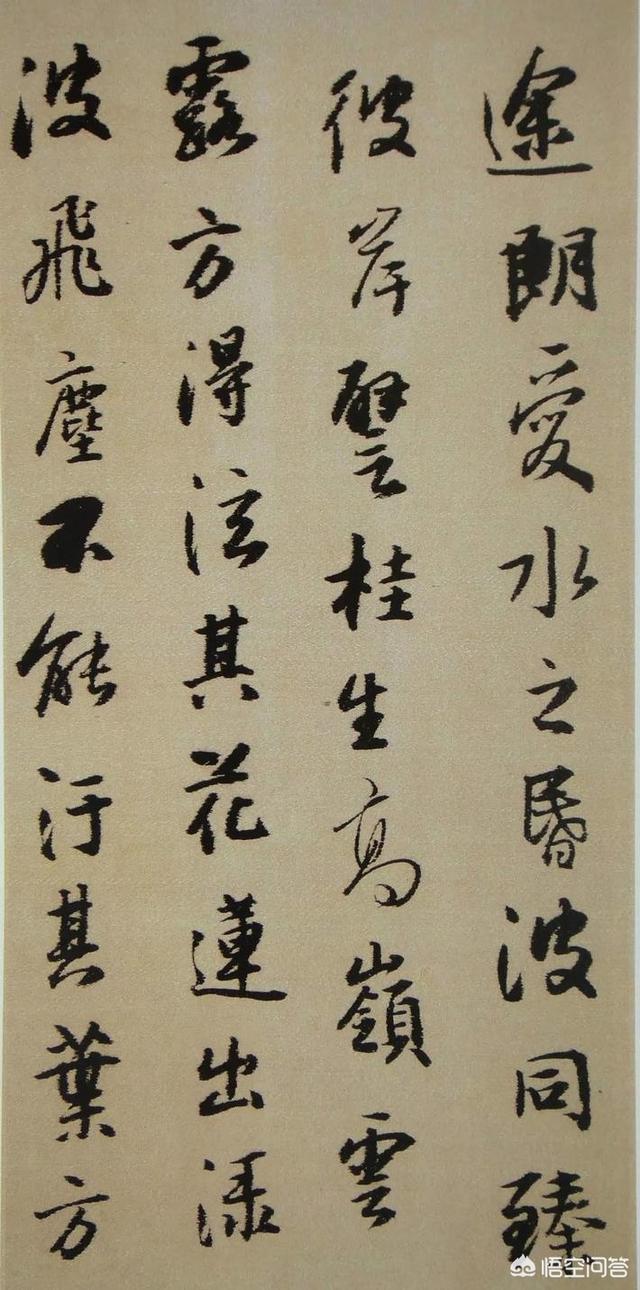 途朗愛水之昏波同臻
彼岸譬桂生高嶺雲
露方得泫其花蓮出淥
波飛塵不能汙其葉方
悟空问答